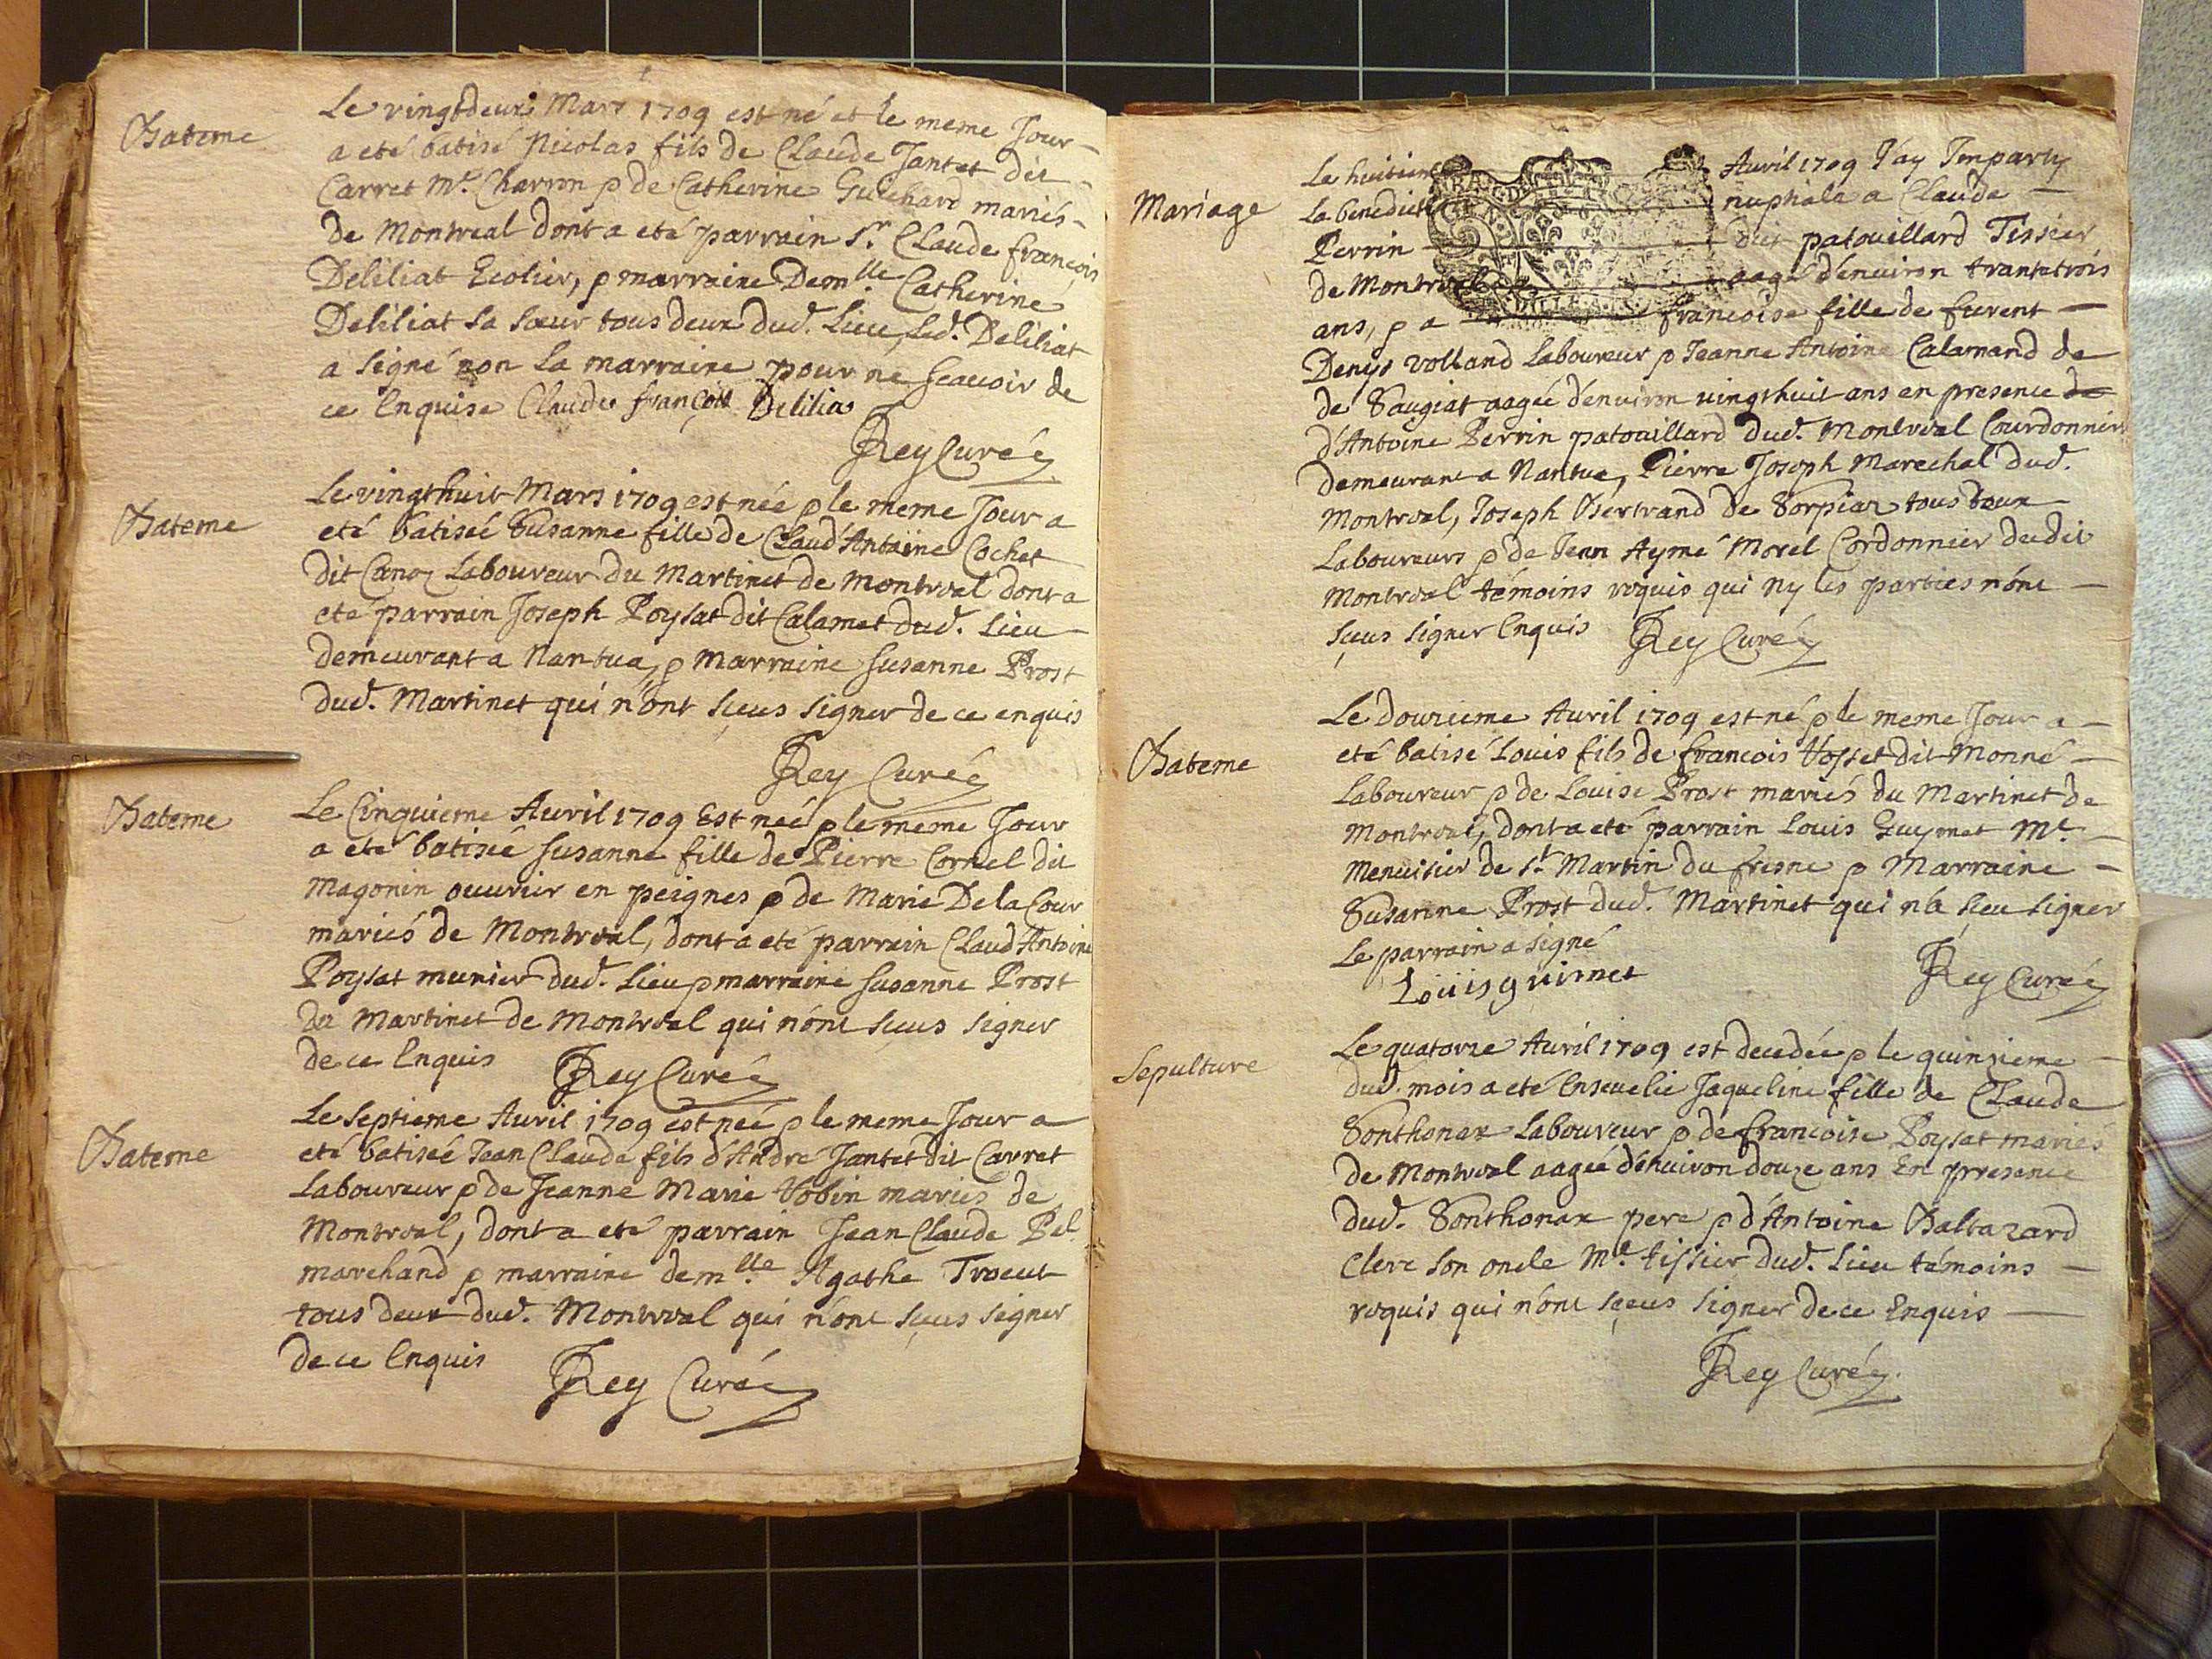 Bateme
Le vingtdeux Mars 1709 est né et le meme Jour
a eté batisé Nicolas fils de Claude Jantet dit
Carret Me. Charron & de Catherine Guichard mariés
de Montreal dont a eté parrain Sr. Claude françois
Deliliat Ecolier, & marraine Demlle. Catherine
Deliliat sa sœur tous deux dud. Lieu, Led. Deliliat
a signé non La marraine pour ne scavoir de
ce Enquise Claude françois Delilia
Rey Curé
Bateme
Le vingthuit Mars 1709 est née & le meme Jour a
eté batiseé Susanne fille de Claud'Antoine Cochet
dit Laboureur du Martinet de Montreal dont a
eté parrain Joseph Poysat dit Calamet dud. Lieu
demeurant a Nantua, & Marraine Susanne Prost
dud. Martinet qui n'ont sçeus signer de ce enquis
Rey Curé
Bateme
Le Cinquieme Auril 1709 Est neé & le meme Jour
a eté batiseé susanne fille de Pierre Cornel dit
Magonin ouurier en peignes & de Marie De la Cour
mariés de Montreal, dont a eté parrain Claud'Antoine
Poysat munier dud. Lieu & marraine susanne Prost
du Martinet de Montreal qui n'ont sçeus signer
de ce Enquis Rey Curé
Bateme
Le Septieme Auril 1709 est neé & le meme Jour a
eté batiseé Jean Claude fils d'André Jantet dit Carret
Laboureur & de Jeanne Marie Vobin mariés de
Montreal, dont a eté parrain Jean Claude
marchand & marraine demlle. Agathe
tous deux dud. Montreal qui n'ont sçeus signer
de ce Enquis
Rey Curé
Mariage
Le huitiem Auril 1709 J'ay Imparty
La benedict nuptiale a Claude
Perrin dit patouillard Tissier
de Montreal aagé d'enuiron trantetrois
ans, & a francoise fille de furent
Denys Volland Laboureur & Jeanne Antoine Calamand de
de Saugiat aageé d'enuiron uingthuit ans en presence de
d'Antoine Perrin patouillard dud. Montreal Courdonnier
demeurant a Nantua, Pierre Joseph Marechal dud.
Montreal, Joseph Bertrand de Sorpiaz tous deux
Laboureurs & de Jean Aymé Morel Cordonnier dudit
Montreal témoins requis qui ny les parties n'ont
sçeus signer Enquis Rey Curé
Bateme
Le douzieme Auril 1709 est né & le meme Jour a
eté batisé Louis fils de francois Vosset dit Monné
Laboureur & de Louise Prost mariés du Martinet de
Montreal, dont a eté parrain Louis Guymet Me.
Menuisier de St. Martin du fresne & Marraine
Susanne Prost dud. Martinet qui n'a sçeu signer
Le parrain a signé
Loüis guimet Rey Curé
Sepulture
Le quatorze Auril 1709 est decedée & le quinzieme
dud. mois a eté Enseuelie Jaqueline fille de Claude
Sonthonax Laboureur & de francoise Poysat mariés
de Montreal aageé d'enuiron douze ans En presence
dud. Sonthonax pere & d'Antoine Baltazard
Clerc son oncle Me. tissier dud. Lieu témoins
requis qui n'ont sçeus signer de ce Enquis
Rey Curé